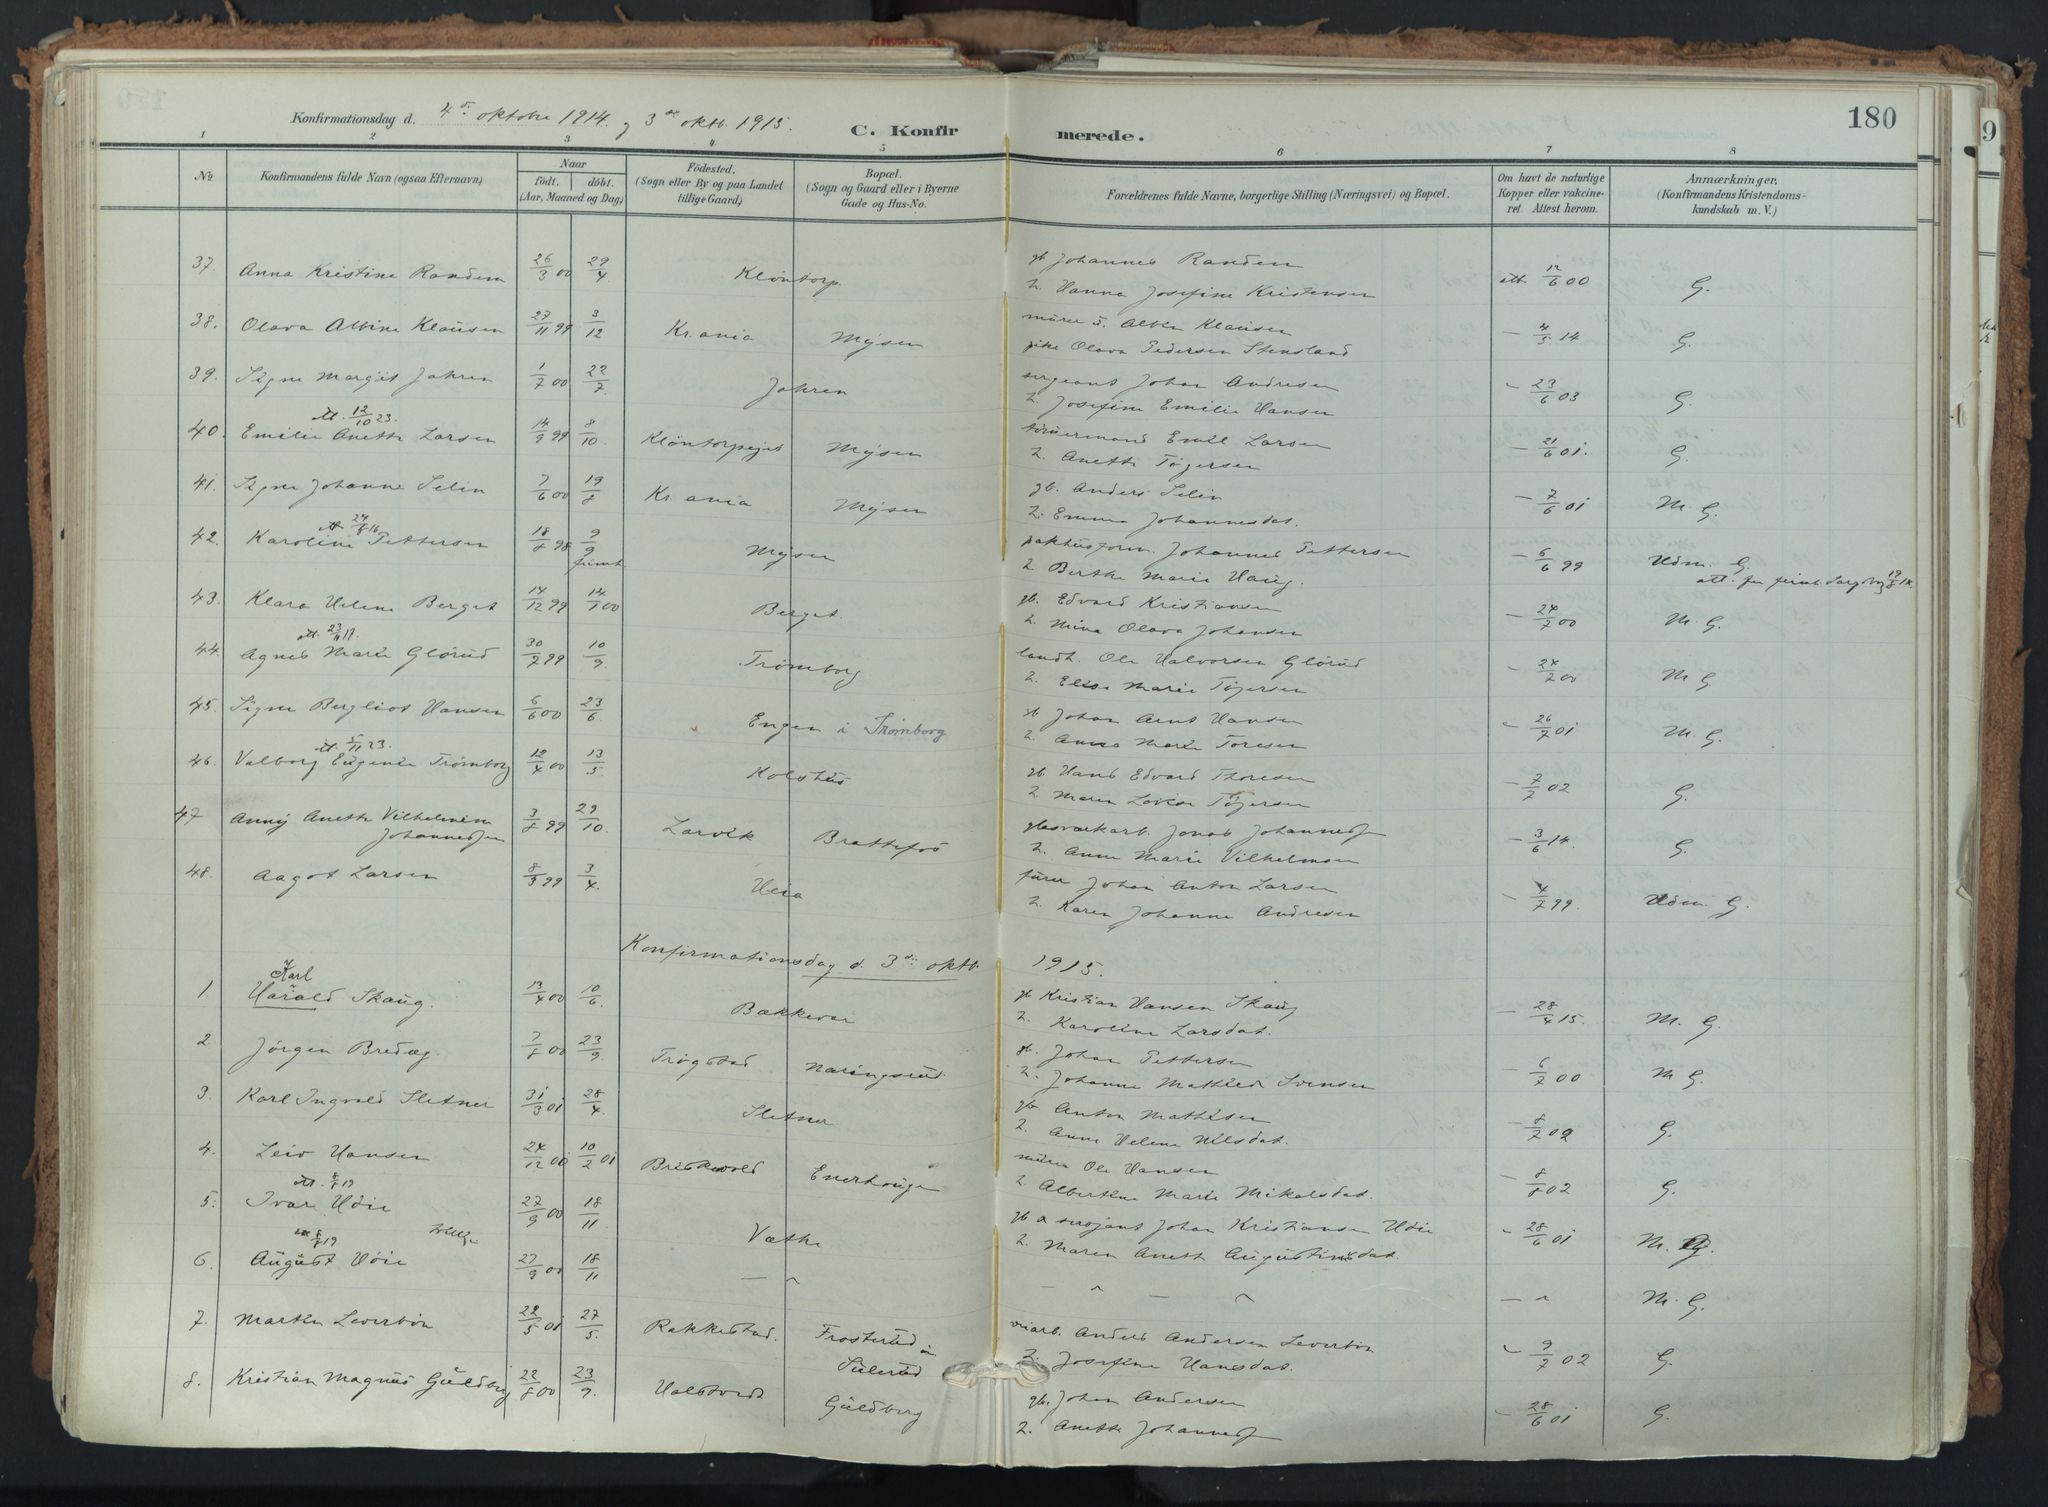 180
Konfirmationsdag d. 4de oktobre 1914. og 3die oktb. 1915.
C. Konfirmerede.
1 2 3 4 5 6 7 8
No
Konfirmandens fulde Navn (ogsaa Efternavn)
Naar
födt. döbt.
(Aar, Maaned og Dag)
Födested.
(Sogn eller By og paa Landet
tillige Gaard)
Bopæl.
(Sogn og Gaard eller i Byerne
Gade og Hus-No.
Forældrenes fulde Navne, borgerlige Stilling (Næringsvei) og Bopæl.
Om havt de naturlige
Kopper eller vakcine-
ret Attest herom.
Anmærkninger.
(Konfirmandens Kristendoms-
kundskab m. V.)
37. Anna Kristine Randem 26/3 00 29/4 Klöntorp. gb Johannes Randem att. 12/6 00 G.
2. Hanna Josefine Kristensen
38. Olava Albine Klausen 27/11 99 3/12 Kr.ania Mysen murer Albin Klausen — 4/5 14 G.
pike Olava Pedersen Stensland
39. Signe Margit Jahren 1/7 00 22/7 Jahren sergeant Johan Andresen — 23/6 03 G.
2. Josefine Emilie Hansen
att. 12/10 23.
40. Emilie Anette Larsen 14/9 99 8/10 Klöntorpejet Mysen tömmermand Emil Larsen — 21/6 01. G.
2. Anette Töjersen
41. Signe Johanne Selin 7/6 00 19/8 Kr.ania Mysen gb. Anders Selin — 7/6 01 M. G.
2. Emma Johannesdat.
att 24/8 16
42. Karoline Pettersen 18/8 98 9/9 frimt Mysen pakhusform. Johannes Pettersen — 6/6 99 Udm. G.
2. Berthe Marie Haug. att. for frimt. Sarpsborg 19/8 18.
43. Klara Helene Berget 14/12 99 14/1 00 Berget. gb. Edvard Kristiansen — 24/7 00 M. G.
2. Mina Olava Johansen
att. 23/11 17.
44. Agnes Marie Glörud 30/7 99 10/9. Trömborg landh. Ole Halvorsen Glörud — 24/7 00 M G
2. Elise Marie Töjersen
45. Signe Bergliot Hansen 6/6 00 23/6. Engen i Trömborg gb Johan Arnt Hansen — 26/7 01 M. G.
2. Anna Marie Toresen
att. 5/11 23.
46. Valborg Eugenie Trömborg 12/4 00 13/5. Kolshus gb. Hans Edvard Thoresen — 7/7 02 G.
2. Maren Lovise Töjersen
47 Anny Anette Vilhelmine 3/8 99 29/10. Larvik Brattefos glasværkarb. Jonas Johannessen — 3/6 14. G.
Johannessen 2. Anne Marie Vilhelmsen
48. Aagot Larsen 8/3 99 3/4. Heia Johan Anton Larsen — 4/7 99. Udm. G.
2. Karen Johanne Andresen
Konfirmationsdag d. 3die oktb. 1915.
Karl
1. Harald Skaug. 13/4 00 10/6. Bækkevar gb Kristian Hansen Skaug — 28/4 15. M. G.
2. Karoline Larsdat.
2. Jörgen Bredæg. 7/8 00 23/9. Trögstad Næringsrud gb. Johan Pettersen — 6/7 00 M G.
2. Johanne Mathilde Svensen
3. Karl Ingvald Sletner 31/3 01 28/4. Sletner. gb Anton Mathisen — 8/7 02 G.
2. Anne Helene Nilsdat.
4. Leiv Hansen 24/12 00 10/2 01 Enerhougen murer Ole Hansen — 8/8 02 G.
2. Albertine Marie Mikalsdat.
att. 8/8 19
5. Ivar Udie 27/9 00 18/11 Væthe gb a serjant Johan Kristiansen Udie — 28/6 01 M. G.
2. Maren Aneth Augustinusdat.
att 8/8 19
6. August Udie 27/9 00 18/11 — " — " — " — " M. G.
7. Martin Leverbön 22/5 01 27/5. Rakkestad. Frosterud i veiarb. Anders Andersen Leverbön — 9/7 02 G.
Sulerud 2. Josefine Hansdat.
8. Kristian Magnus Guldberg 22/8 00 23/9. Guldberg gb. Johan Andersen — 28/6 01 G.
2. Anette Johannesd.